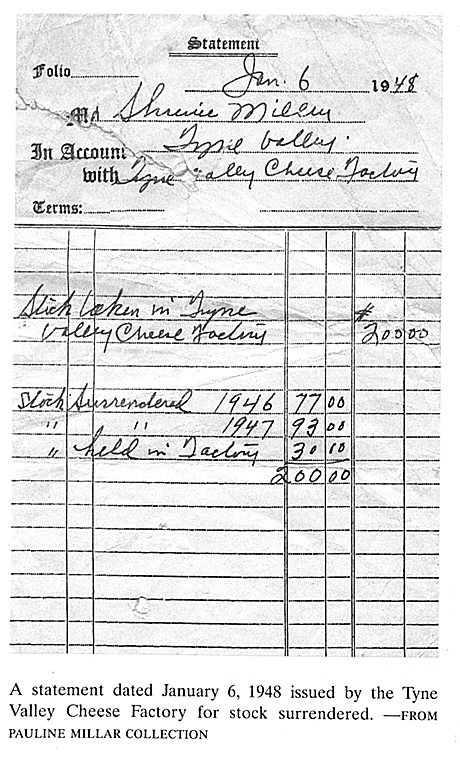 Statement
Folio Jan. 6 1948
Md
Tyne Valley.
In Account
with Tyne Valley Cheese Factory
Terms:
Stock taken in Tyne $
Valley Cheese Factory 200 00
Stock Surrendered 1946 77 00
" " 1947 93 00
" held in Factory 30 00
200 00
A statement dated January 6, 1948 issued by the Tyne
Valley Cheese Factory for stock surrendered. —FROM
PAULINE MILLAR COLLECTION